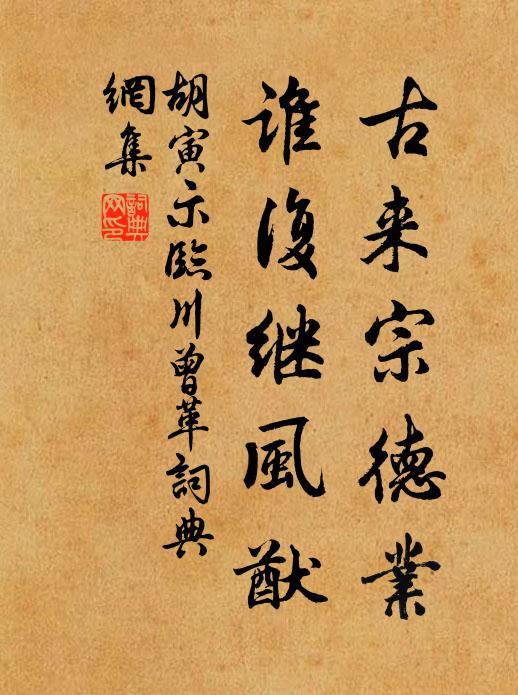 古来宗德業
誰復継風猷
胡寅示臨川曾革詞典
網集
詞典
网印